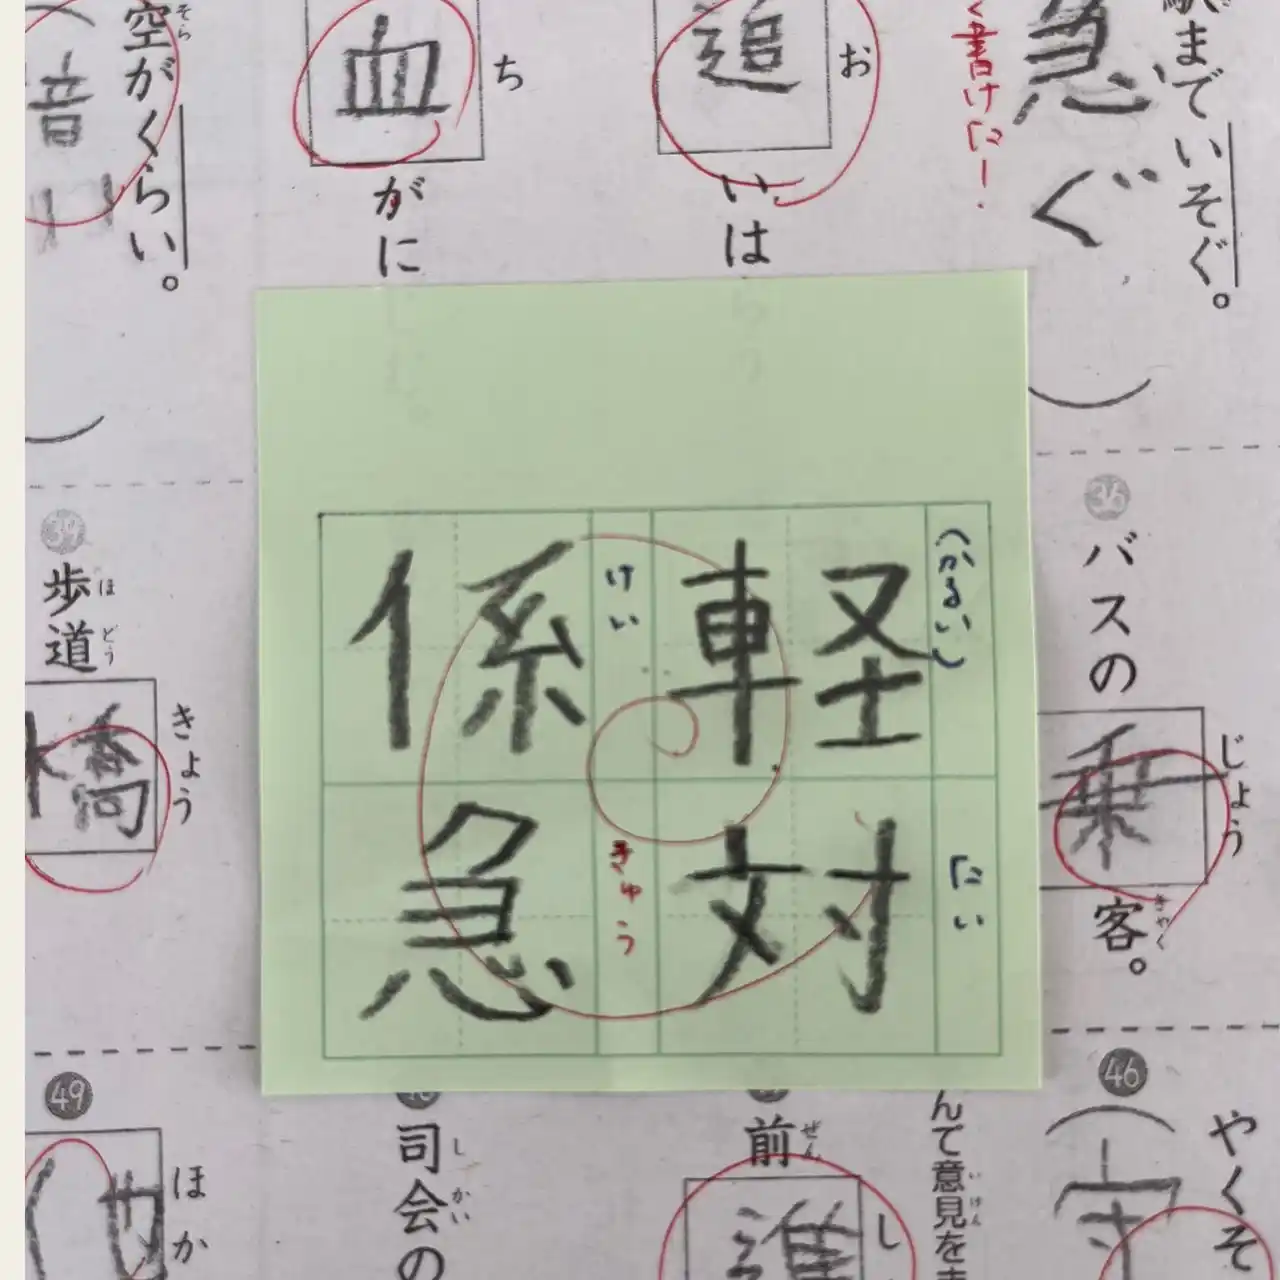 駅までいそぐ。
急ぐ
く書けた!
追
お
いは
血
ち
がに
空がくらい。
そら
暗
36
バスの
乗
じょう
客。
きゃく
軽
(かるい)
対
たい
係
けい
急
きゅう
歩道
ほどう
橋
きょう
46
やくそ
守
んで意見を
いけん
前
ぜん
進
し
司会の
しかい
49
ほか
他